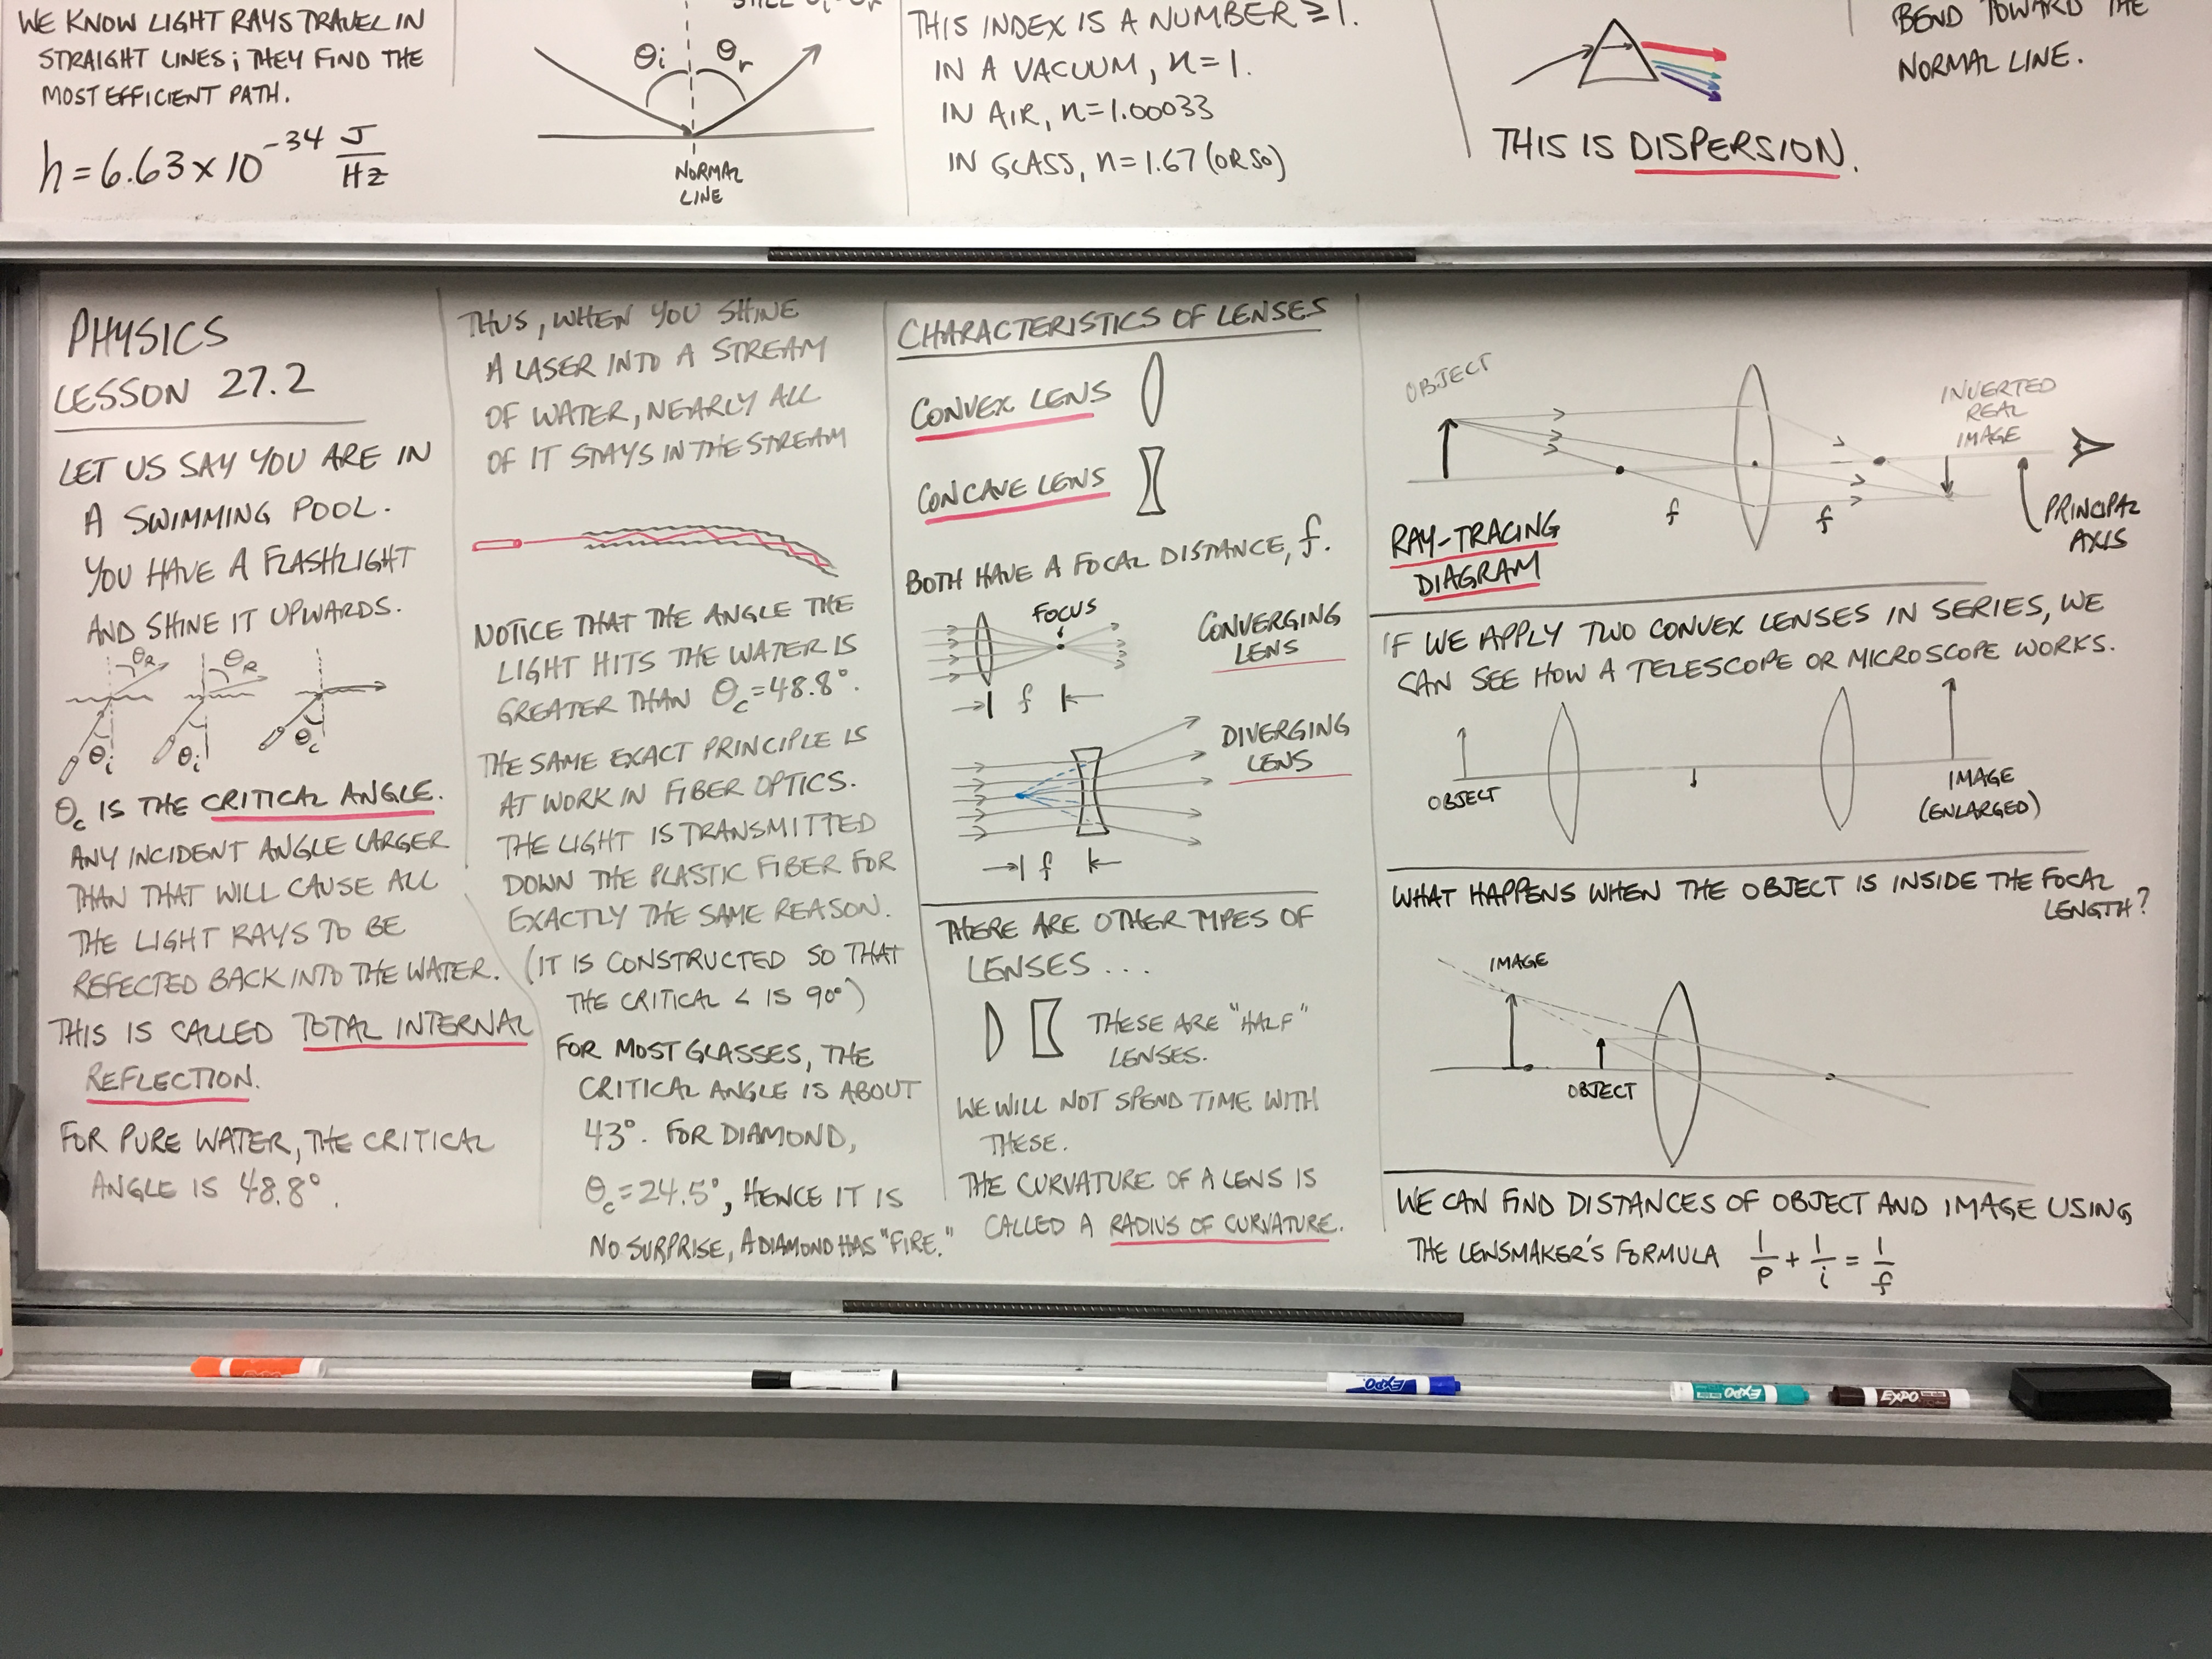 WE KNOW LIGHT RAYS TRAVEL IN
STRAIGHT LINES; THEY FIND THE
MOST EFFICIENT PATH.
h = 6.63 x 10^-34 J/Hz
θi θr
NORMAL
LINE
THIS INDEX IS A NUMBER ≥ 1.
IN A VACUUM, n = 1.
IN AIR, n = 1.00033
IN GLASS, n = 1.67 (OR SO)
THIS IS DISPERSION.
BEND TOWARD THE
NORMAL LINE.
PHYSICS
LESSON 27.2
LET US SAY YOU ARE IN
A SWIMMING POOL.
YOU HAVE A FLASHLIGHT
AND SHINE IT UPWARDS.
θR θR
θi θi θc
θc IS THE CRITICAL ANGLE.
ANY INCIDENT ANGLE LARGER
THAN THAT WILL CAUSE ALL
THE LIGHT RAYS TO BE
REFECTED BACK INTO THE WATER.
THIS IS CALLED TOTAL INTERNAL
REFLECTION.
FOR PURE WATER, THE CRITICAL
ANGLE IS 48.8°.
THUS, WHEN YOU SHINE
A LASER INTO A STREAM
OF WATER, NEARLY ALL
OF IT STAYS IN THE STREAM
NOTICE THAT THE ANGLE THE
LIGHT HITS THE WATER IS
GREATER THAN θc = 48.8°.
THE SAME EXACT PRINCIPLE IS
AT WORK IN FIBER OPTICS.
THE LIGHT IS TRANSMITTED
DOWN THE PLASTIC FIBER FOR
EXACTLY THE SAME REASON.
(IT IS CONSTRUCTED SO THAT
THE CRITICAL < IS 90°)
FOR MOST GLASSES, THE
CRITICAL ANGLE IS ABOUT
43°. FOR DIAMOND,
θc = 24.5°, HENCE IT IS
NO SURPRISE, A DIAMOND HAS "FIRE."
CHARACTERISTICS OF LENSES
CONVEX LENS
CONCAVE LENS
BOTH HAVE A FOCAL DISTANCE, f.
FOCUS
CONVERGING
LENS
f
DIVERGING
LENS
f
THERE ARE OTHER TYPES OF
LENSES ...
THESE ARE "HALF"
LENSES.
WE WILL NOT SPEND TIME WITH
THESE.
THE CURVATURE OF A LENS IS
CALLED A RADIUS OF CURVATURE.
OBJECT
INVERTED
REAL
IMAGE
f f
PRINCIPAL
AXIS
RAY-TRACING
DIAGRAM
IF WE APPLY TWO CONVEX LENSES IN SERIES, WE
CAN SEE HOW A TELESCOPE OR MICROSCOPE WORKS.
OBJECT
IMAGE
(ENLARGED)
WHAT HAPPENS WHEN THE OBJECT IS INSIDE THE FOCAL
LENGTH?
IMAGE
OBJECT
WE CAN FIND DISTANCES OF OBJECT AND IMAGE USING
THE LENSMAKER'S FORMULA 1/p + 1/i = 1/f
EXPO
EXPO
EXPO